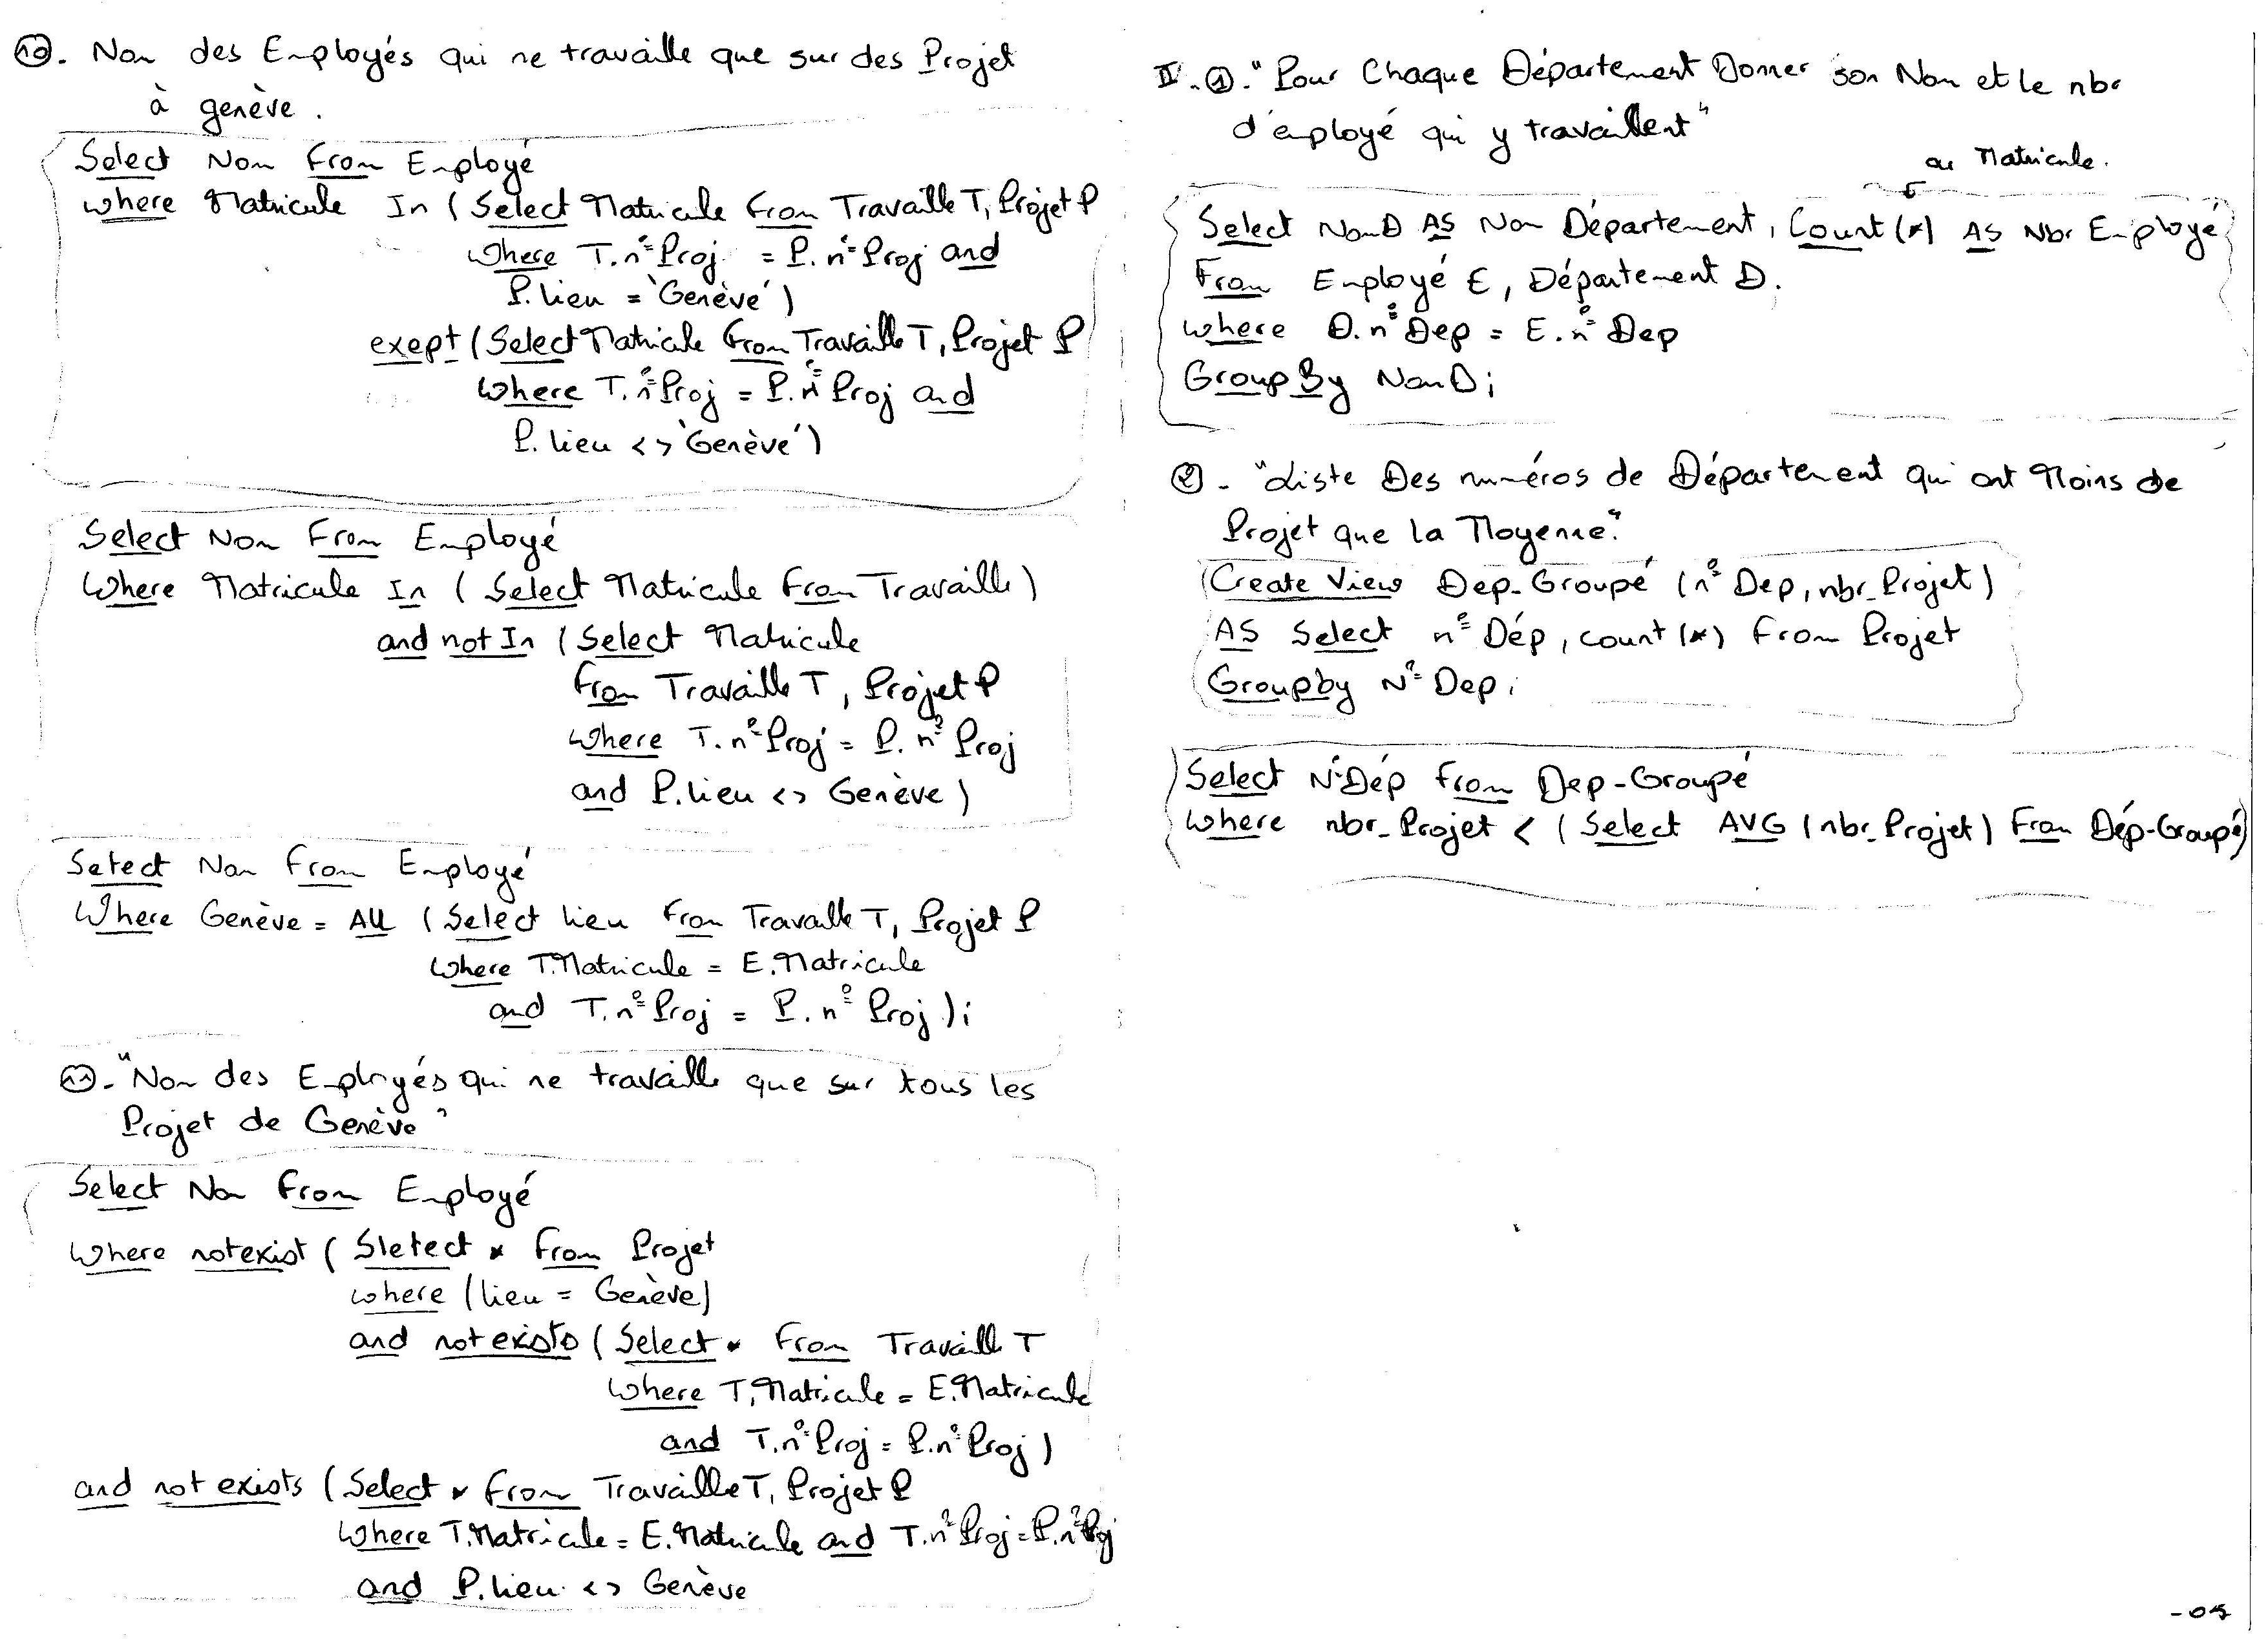 10. Nom des Employés qui ne travaille que sur des Projet
à genève.
Select Nom From Employé
where Matricule In (Select Matricule From Travaille T, Projet P
where T.n°Proj = P.n°Proj and
P.lieu = 'Genève')
exept (Select Matricule From Travaille T, Projet P
where T.n°Proj = P.n°Proj and
P.lieu <> 'Genève')
Select Nom From Employé
Where Matricule In (Select Matricule From Travaille)
and not In (Select Matricule
From Travaille T, Projet P
where T.n°Proj = P.n°Proj
and P.lieu <> Genève)
Select Nom From Employé
Where Genève = All (Select lieu From Travaille T, Projet P
where T.Matricule = E.Matricule
and T.n°Proj = P.n°Proj);
11. "Nom des Employés qui ne travaille que sur tous les
Projet de Genève"
Select Nom From Employé
Where not exist (Sletect * From Projet
where (lieu = Genève)
and not exists (Select * From Travaille T
where T.Matricule = E.Matricule
and T.n°Proj = P.n°Proj)
and not exists (Select * From Travaille T, Projet P
Where T.Matricule = E.Matricule and T.n°Proj = P.n°Proj
and P.lieu <> Genève
II. 1. "Pour Chaque Département Donner son Nom et le nbr
d'employé qui y travaillent"
ou Matricule.
Select NomD AS Nom Département, Count(*) AS Nbr Employé
From Employé E, Département D.
where D.n°Dep = E.n°Dep
Group By NomD;
2. "Liste Des numéros de Département qui ont Moins de
Projet que la Moyenne"
Create View Dep-Groupé (n°Dep, nbr_Projet)
AS Select n°Dép, count(*) From Projet
Group by N°Dep;
Select N°Dép From Dep-Groupé
where nbr_Projet < (Select AVG (nbr_Projet) From Dép-Groupé)
-05